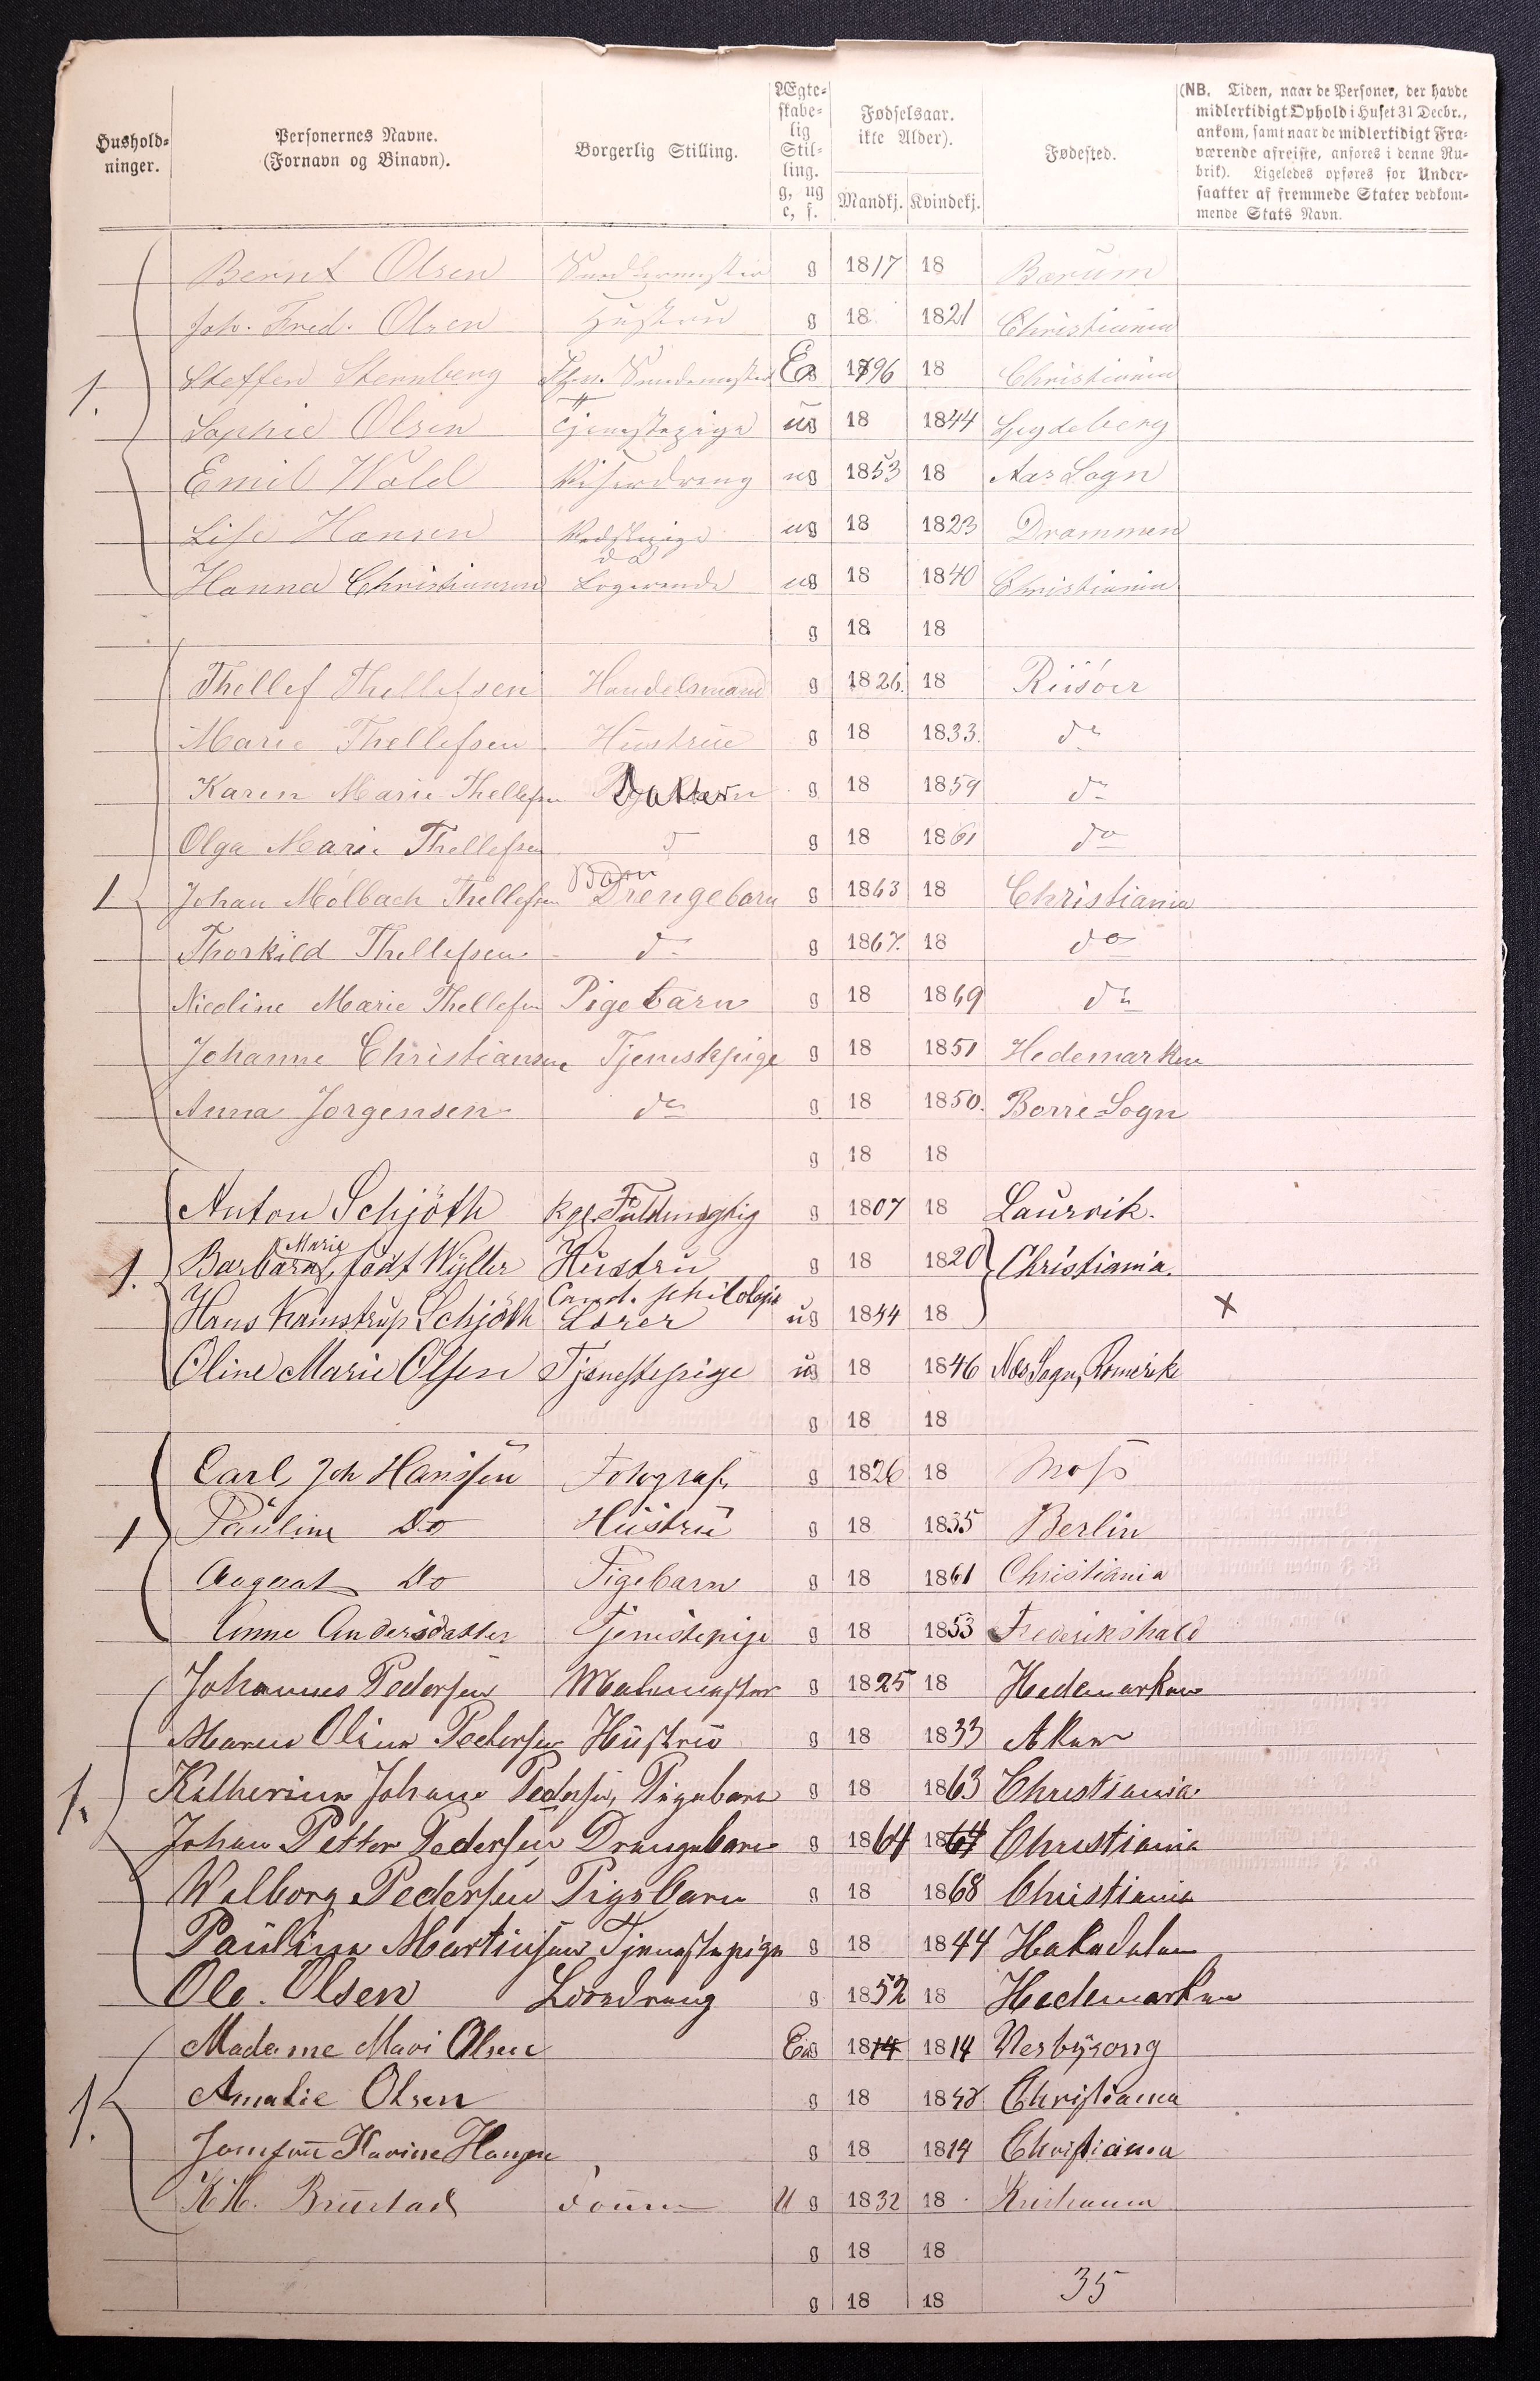 Hushold-
ninger.
Personernes Navne.
(Fornavn og Binavn).
Borgerlig Stilling.
Ægte-
skabe-
lig
Stil-
ling.
g, ug
e, f.
Fødselsaar.
ikke Alder).
Mandkj. Kvindekj.
Fødested.
(NB. Tiden, naar de Personer, der havde
midlertidigt Ophold i Huset 31 Decbr.,
ankom, samt naar de midlertidigt Fra-
værende afreiste, anføres i denne Ru-
brik). Ligeledes opføres for Under-
saatter af fremmede Stater vedkom-
mende Stats Navn.
Bernt Olsen g 1817 18 Bærum
Joh. Fred. Olsen Hustru g 18 1821 Christiania
1. Steffen Sternberg E 1796 18 Christiania
Sophie Olsen Tjenestepige ug 18 1844 Spydeberg
Emil Wold Viserdreng ug 1853 18 Aas Sogn
Lise Hansen ug 18 1823 Drammen
do
Hanna Christiansen Logerende ug 18 1840 Christiania
g 18 18
Thellef Thellefsen Handelsmand g 1826. 18 Riisöer
Marie Thellefsen Hustrue g 18 1833. do
Karen Marie Thellefsen Datter g 18 1859 do
Olga Marie Thellefsen g 18 1861 do
Barn
1 Johan Mölbach Thellefsen Drengebarn g 1863 18 Christiania
Thorkild Thellefsen do g 1867. 18 do
Nicoline Marie Thellefsen Pigebarn g 18 1869 do
Johanne Christiansen Tjenestpige g 18 1851 Hedemarken
Anna Jorgensen do g 18 1850. Borre Sogn
g 18 18
Anton Schjöth kgl. Fuldmægtig g 1807 18 Laurvik.
Marie
1. Barbara, født Wyller Hustru g 18 1820 Christiania.
Cand. philologi
Hans Kamstrup Schjöth Lærer ug 1844 18 x
Oline Marie Olsen Tjenestepige ug 18 1846 Næs Sogn, Romerike
g 18 18
Carl Joh Hanssen Fotograf g 1826 18 Moss
1 Pauline Do Hustru g 18 1835 Berlin
August Do Pigebarn g 18 1861 Christiania
Anne Andersdatter Tjenistepige g 18 1853 Frederikshald
Johannes Pedersen Malemester g 1825 18 Hedemarken
Maren Oline Pedersen Hustru g 18 1833 Aker
1. Katherine Johane Pedersen, Pigebarn g 18 1863 Christiania
Johan Petter Pedersen Drengebarn g 1864 1864 Christiania
Walborg Pedersen Pigebarn g 18 1868 Christiania
Pauline Martinsen Tjenestepige g 18 1844 Hakadalen
Ole. Olsen Læredreng g 1852 18 Hedemarken
Madame Mari Olsen E 1814 1814
1. Amalie Olsen g 18 Christiania
Jomfru Karine g 18 1814 Christiania
Brustad U g 1832 18 Kristiania
g 18 18
g 18 18 35